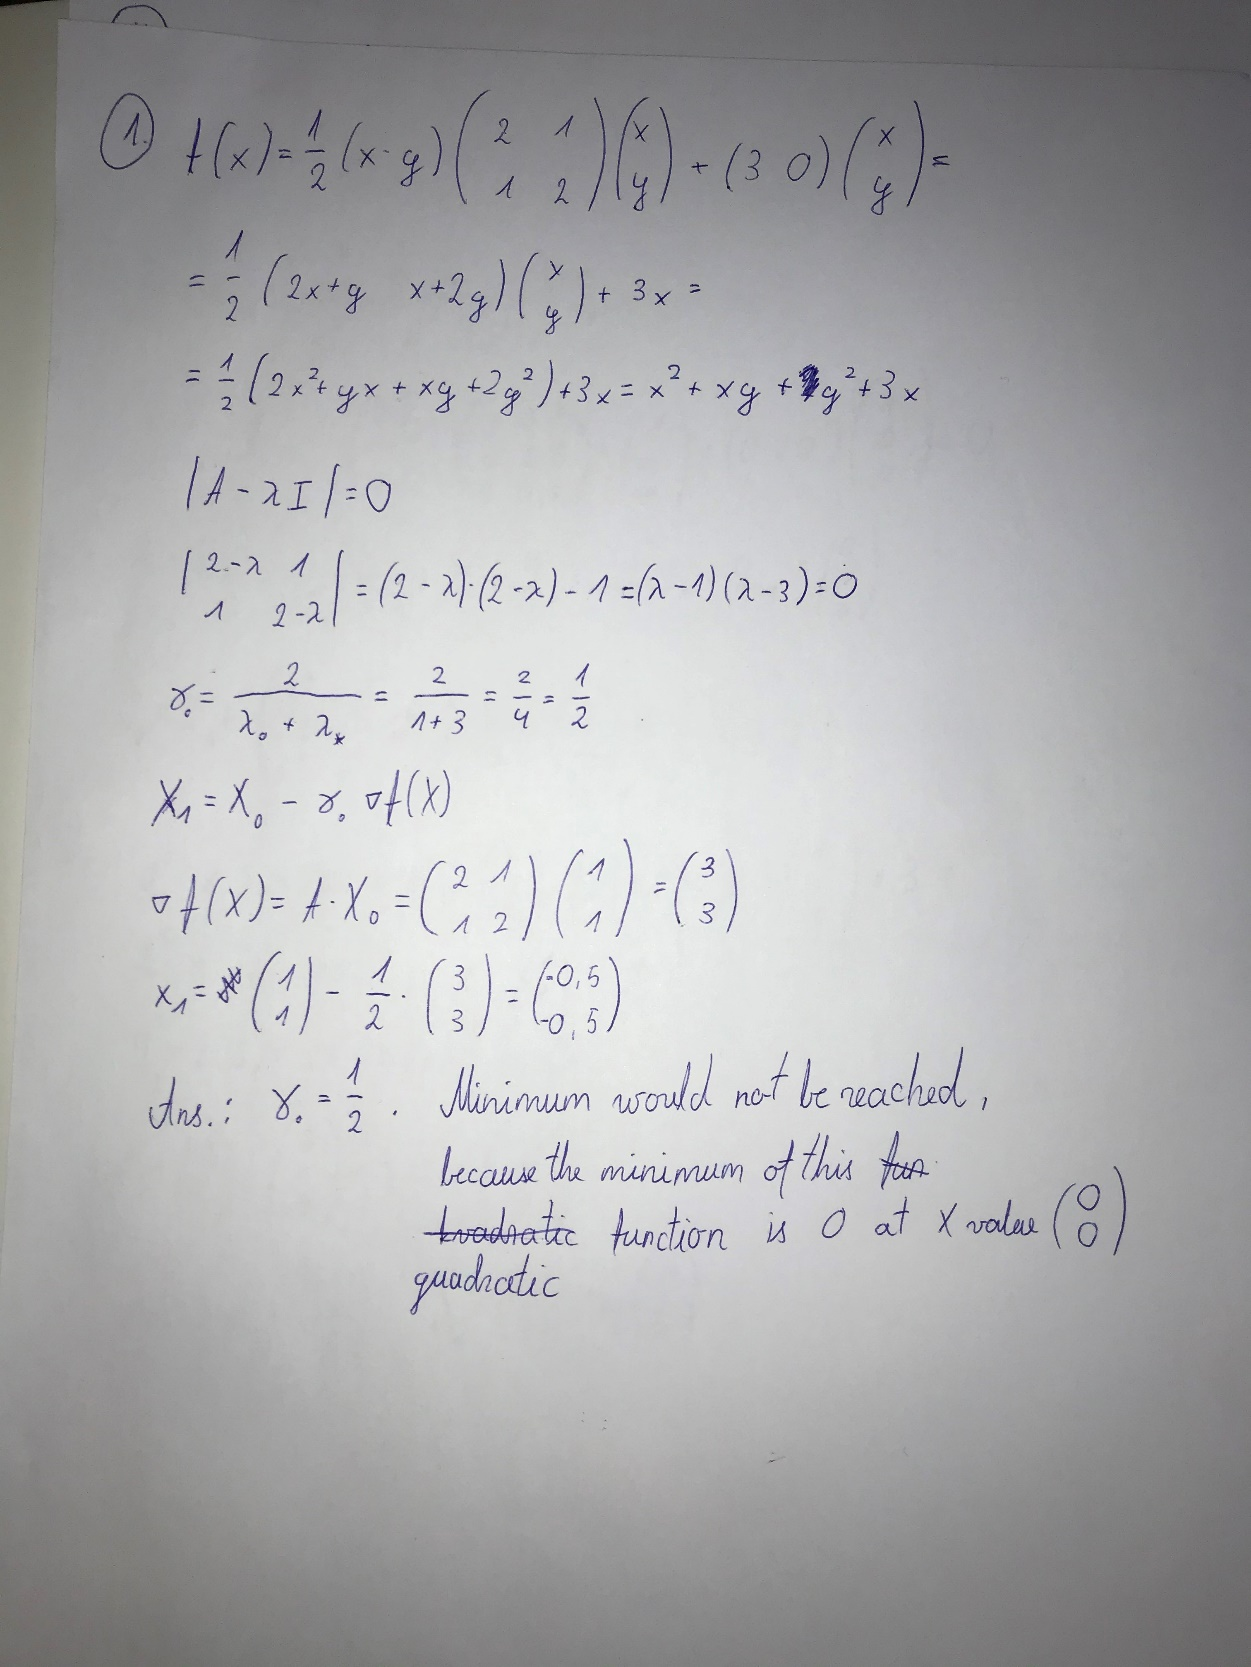 1. f(x) = 1/2 (x · y) (2 1; 1 2) (x; y) + (3 0) (x; y) =
= 1/2 (2x+y x+2y) (x; y) + 3x =
= 1/2 (2x²+ yx + xy + 2y²) + 3x = x² + xy + y² + 3x
|A - λI| = 0
|2-λ 1; 1 2-λ| = (2-λ)·(2-λ) - 1 = (λ-1)(λ-3) = 0
γ₀ = 2/(λ₀ + λ*) = 2/(1+3) = 2/4 = 1/2
X₁ = X₀ - γ₀ ∇f(X)
∇f(X) = A·X₀ = (2 1; 1 2) (1; 1) = (3; 3)
x₁ = (1; 1) - 1/2 · (3; 3) = (-0,5; -0,5)
Ans.: γ₀ = 1/2 . Minimum would not be reached,
because the minimum of this fun
kvadratic function is 0 at X value (0; 0)
quadratic